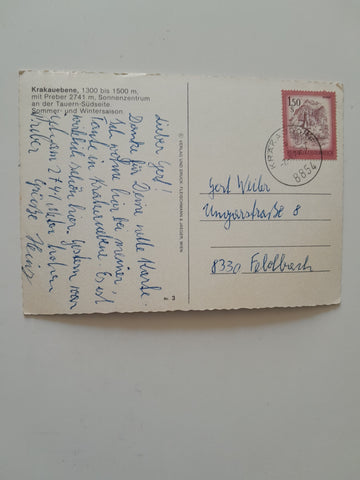 Krakauebene, 1300 bis 1500 m,
mit Preber 2741 m, Sonnenzentrum
an der Tauern-Südseite
Sommer- und Wintersaison
Lieber Gert!
Danke für Deine nette Karte.
Ich wohne hier bei meiner
Tante in Krakauebene. Es ist
wirklich schön hier. Gestern war
ich am 2741 Meter hohen
Preber. Grüße
© VERLAG UND DRUCK
WIEN
3
1.50
8854
Gert Weiler
Ungarstraße 8
8330 Feldbach